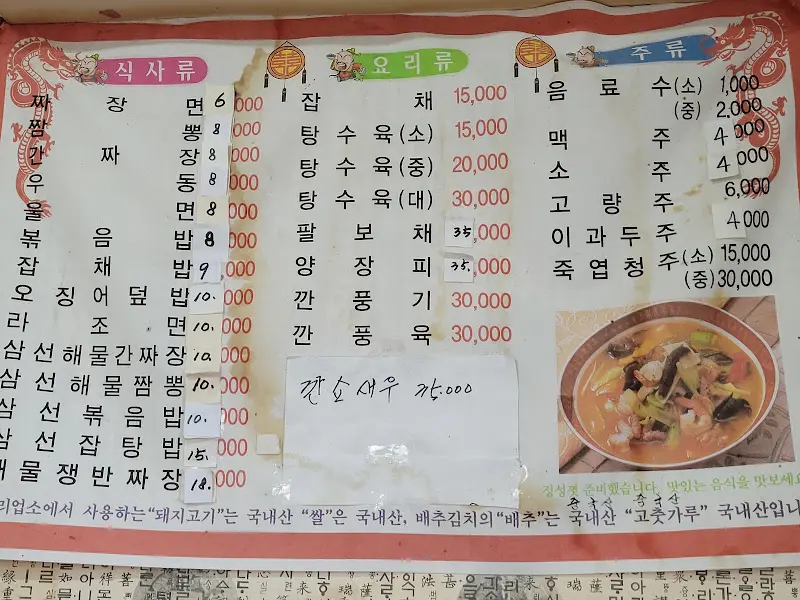 식사류
짜장면 6,000
짬뽕 8,000
간짜장 8,000
우동 8,000
울면 8,000
볶음밥 8,000
잡채밥 9,000
오징어덮밥 10,000
라조면 10,000
삼선해물간짜장 10,000
삼선해물짬뽕 10,000
삼선볶음밥 10,000
삼선잡탕밥 15,000
해물쟁반짜장 18,000
요리류
잡채 15,000
탕수육(소) 15,000
탕수육(중) 20,000
탕수육(대) 30,000
팔보채 35,000
양장피 35,000
깐풍기 30,000
깐풍육 30,000
깐쇼새우 35.000
주류
음료수(소) 1,000
(중) 2,000
맥주 4,000
소주 4,000
고량주 6,000
이과두주 4,000
죽엽청주(소) 15,000
(중) 30,000
정성껏 준비했습니다. 맛있는 음식을 맛보세요
중국산 중국산
리업소에서 사용하는 "돼지고기"는 국내산 "쌀"은 국내산, 배추김치의 "배추"는 국내산 "고춧가루" 국내산입니